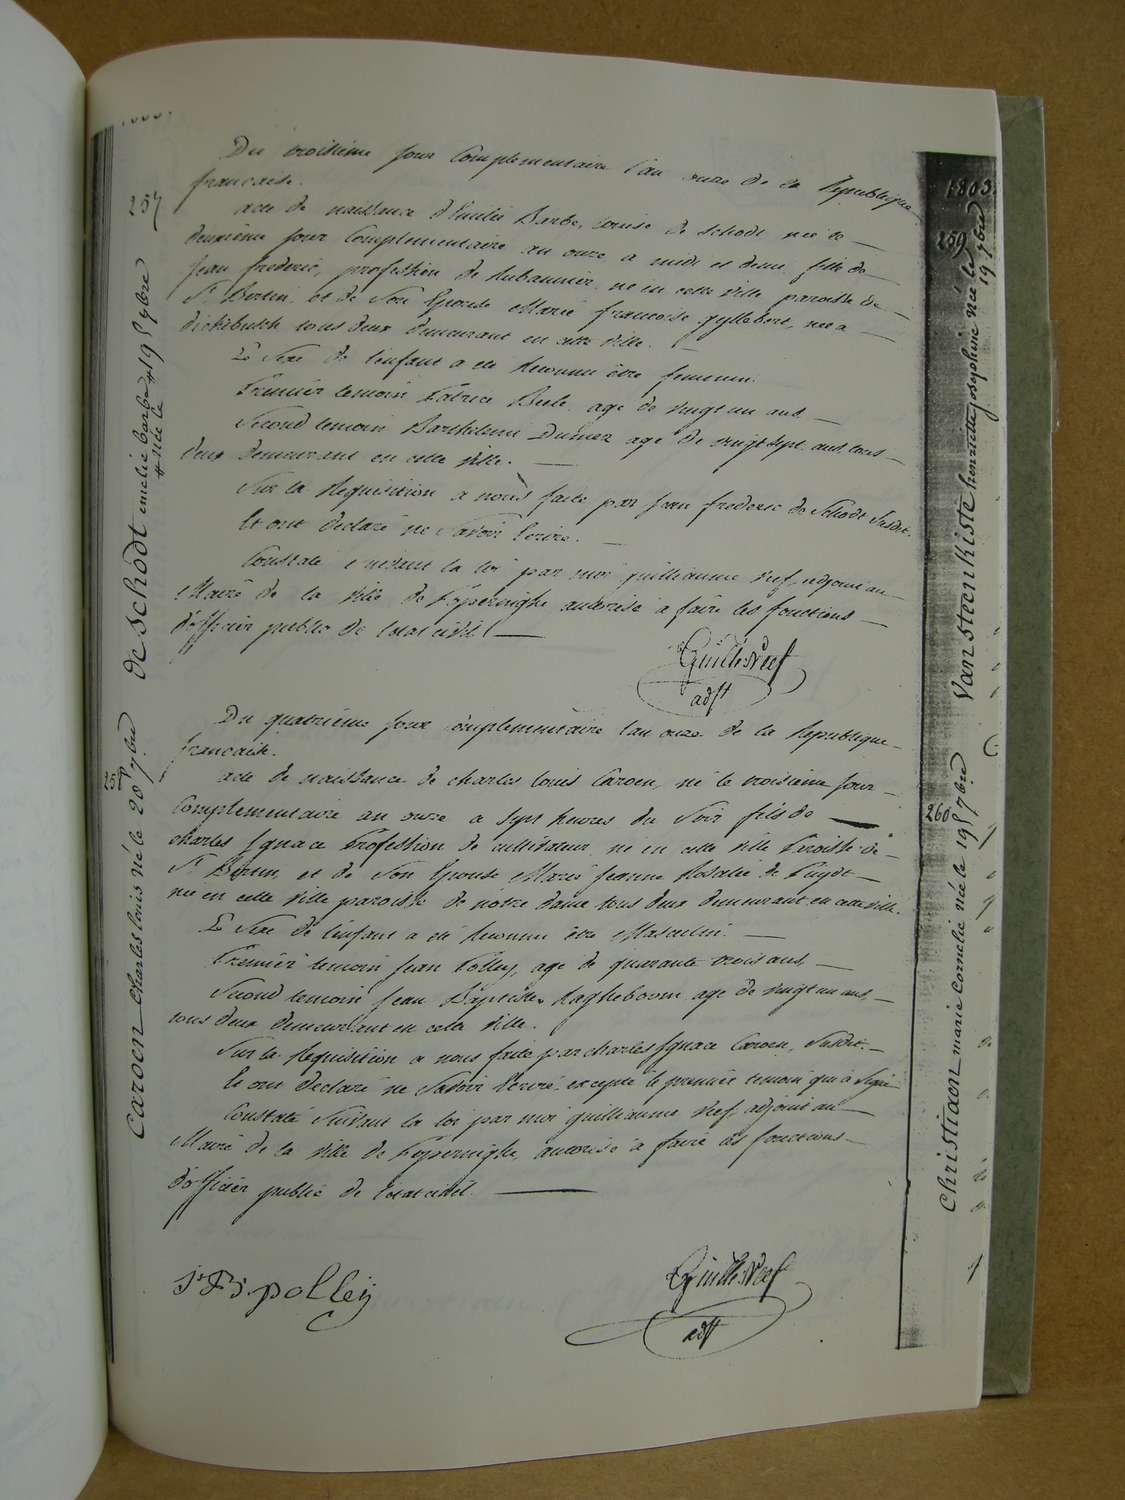 257
de Schodt emelie barbe # 19 7bre
# née le
Du troisième jour Complementaire l'an onze de la Republique
francaise.
acte de naissance d'Emilie Barbe, Louise de Schodt née le
deuxième jour Complementaire an onze a midi et demi fille de
Jean frederic, profession de Aubannier, né en cette ville paroisse de
St Bertin, et de Son Epouse Marie francoise gyllebert, née a
dickebusch tous deux demeurant en cette ville.
Le Sexe de l'enfant a été Reconnu être feminin.
Premier temoin Patrice Beele age de vingt un ans
Second temoin Barthelemi Dumez age de vingt Sept ans, tous
deux demeurant en cette ville.
Sur la Requisition a nous faite par Jean frederic de Schodt Susdit.
Et ont declaré ne Savoir Ecrire.
Constaté Suivant la loi par moi guilliaume Neef, adjoint au
Maire de la ville de Poperinghe autorisé a faire les fonctions
d'officier public de l'etat civil
Guille Neef
adjt
258
Caroen Charles louis né le 20 7bre
Du quatrième jour complementaire l'an onze de la Republique
francaise.
acte de naissance de charles louis Caroen, né le troisieme jour
Complementaire an onze a Sept heures du Soir fils de
charles Ignace Profession de cultivateur, né en cette ville Paroisse de
St Bertin, et de Son Epouse Marie Jeanne Rosalie de Puydt
née en cette ville paroisse de nôtre dame tous deux demeurant en cette ville.
Le Sexe de l'enfant a été Reconnu être Masculin.
Premier temoin Jean Polley, age de quarante trois ans,
Second temoin Jean Baptiste Hagheboom age de vingt un ans,
tous deux demeurant en cette ville.
Sur la Requisition a nous faite par charles Ignace Caroen, Susdit.
Et ont declaré ne Savoir Ecrire, excepté le premier temoin qui à Signé
Constaté Suivant la loi par moi guilliaume Neef, adjoint au
Maire de la ville de Poperinghe, autorisé a faire les fonctions
d'officier public de l'etat civil.
polleij
Guille Neef
adjt
1803.
259
Vansteenkiste henriette josephine née le
19 7bre
260
Christiaen marie Cornelie née le 19 7bre